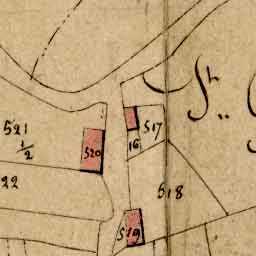 St..
521
1/2
517
520
16
22
518
519